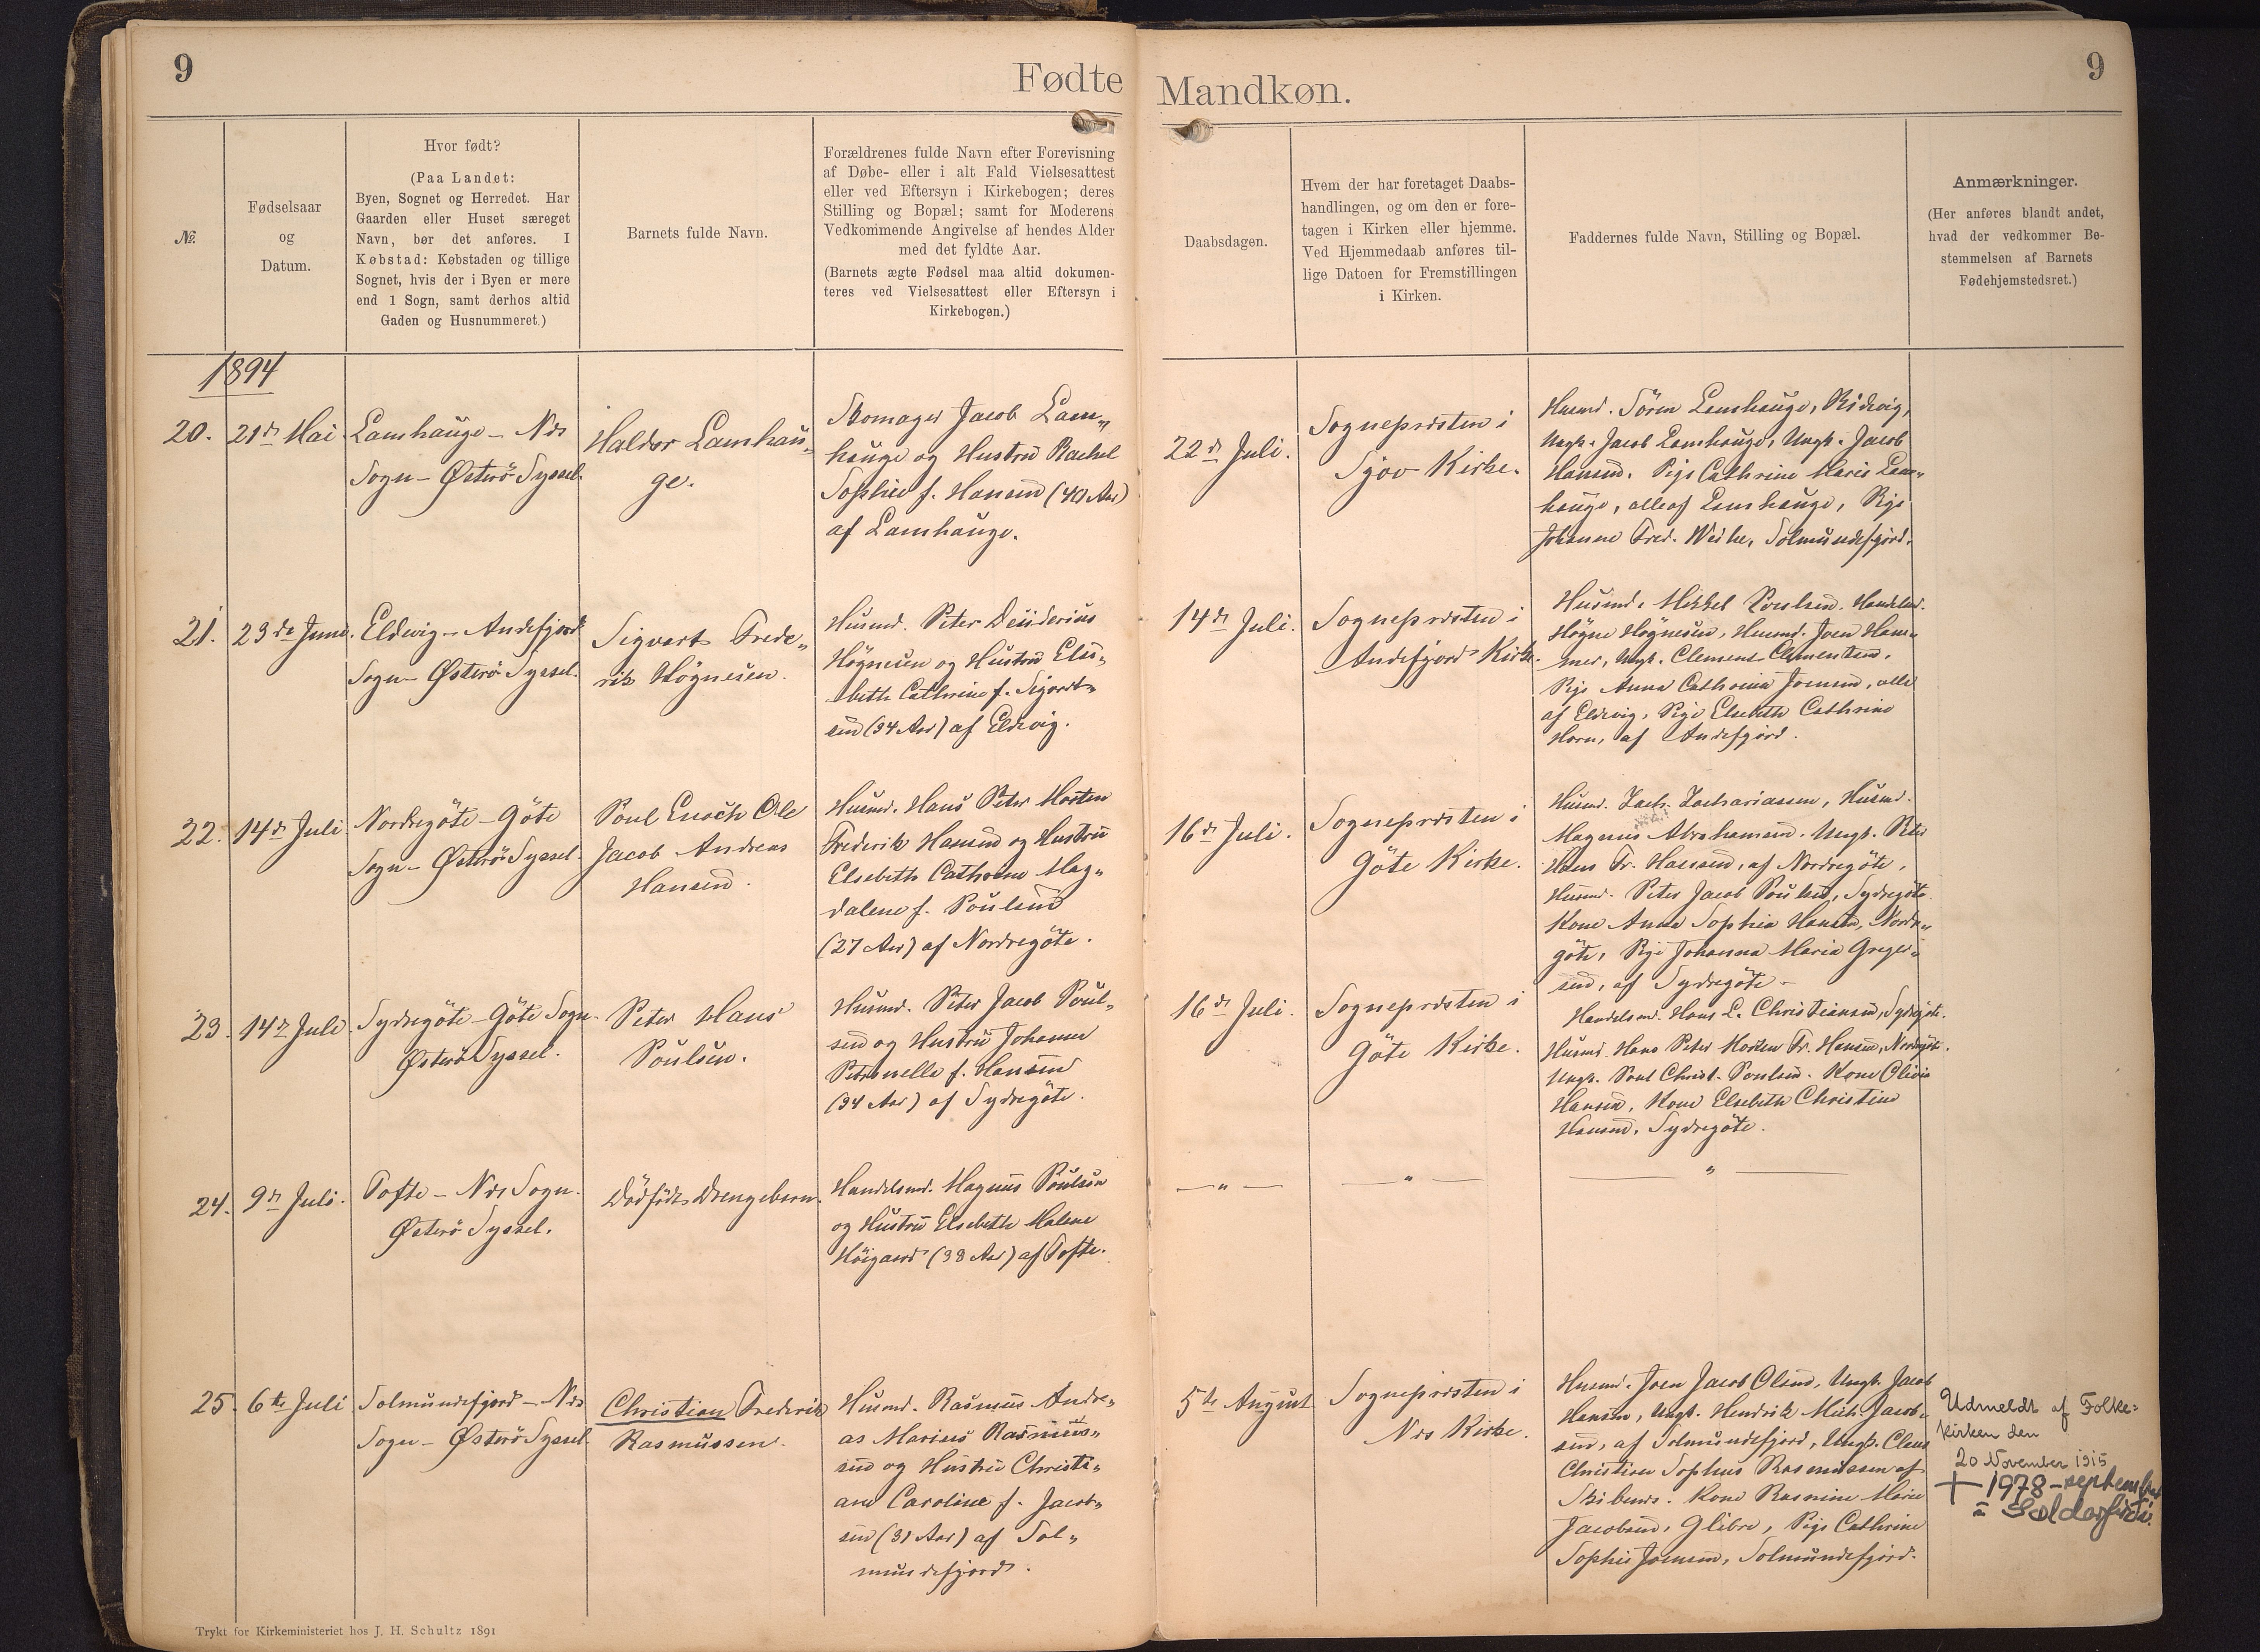 9
Fødte
Mandkøn.
9
№.
Fødselsaar
og
Datum.
Hvor født?
(Paa Landet:
Byen, Sognet og Herredet. Har
Gaarden eller Huset særeget
Navn, bør det anføres. I
Købstad: Købstaden og tillige
Sognet, hvis der i Byen er mere
end 1 Sogn, samt derhos altid
Gaden og Husnummeret.)
Barnets fulde Navn.
Forældrenes fulde Navn efter Forevisning
af Døbe- eller i alt Fald Vielsesattest
eller ved Eftersyn i Kirkebogen; deres
Stilling og Bopæl; samt for Moderens
Vedkommende Angivelse af hendes Alder
med det fyldte Aar.
(Barnets ægte Fødsel maa altid dokumen-
teres ved Vielsesattest eller Eftersyn i
Kirkebogen.)
Daabsdagen.
Hvem der har foretaget Daabs-
handlingen, og om den er fore-
tagen i Kirken eller hjemme.
Ved Hjemmedaab anføres til-
lige Datoen for Fremstillingen
i Kirken.
Faddernes fulde Navn, Stilling og Bopæl.
Anmærkninger.
(Her anføres blandt andet,
hvad der vedkommer Be-
stemmelsen af Barnets
Fødehjemstedsret.)
1894
20.
21de Mai
Lamhauge - Nes
Sogn - Østerö Syssel.
Haldor Lamhau„
ge.
Skomager Jacob Lam„
hauge og Hustru Rachel
Sophie f. Hansen (40 Aar)
af Lamhauge.
22de Juli.
Sognepræsten i
Sjov Kirke.
Husmd. Sören Lamhauge,
Ungk. Jacob Lamhauge, Ungk. Jacob
Hansen. Pige Cathrine Marie Lam„
hauge, alle af Lamhauge, Pige
Johanne Fred. Weihe, Solmundefjord.
21.
23de Juni.
Eldevig - Andefjord
Sogn - Österö Syssel.
Sigvart Frede„
rik Högnesen.
Husmd. Peter Desiderius
Högnesen og Hustru Elsi„
beth Cathrine f. Sigvart„
sen (34 Aar) af Eldevig.
14de Juli.
Sognepræsten i
Andefjord Kirke.
Husmd. Mikkel Poulsen. Handelsmd.
Högne Högnesen, Husmd. Joen Ham„
mer, Ungk. Clement Clementsen.
Pige Anna Cathrina Joensen, alle
af Eldevig, Pige Elsebeth Cathrine
Horn, af Andefjord.
22.
14de Juli
Nordregöte - Göte
Sogn - Österö Syssel.
Poul Enoch Ole
Jacob Andreas
Hansen.
Husmd. Hans Peter Morten
Frederik Hansen og Hustru
Elsebeth Cathrine Mag„
dalene f. Poulsen
(27 Aar) af Nordregöte.
16de Juli.
Sognepræsten i
Göte Kirke.
Husmd. Zach. Zachariassen, Husmd.
Magnus Abrahamsen. Ungk. Peter
Hans Fr. Hansen, af Nordregöte,
Husmd. Peter Jacob Poulsen, Sydregöte
Kone Anna Sophia Hansen, Nordre„
göte, Pige Johanna Maria Greger„
sen, af Sydregöte -
23.
14de Juli
Sydregöte - Göte Sogn -
Österö Syssel.
Peter Hans
Poulsen.
Husmd. Peter Jacob Poul„
sen og Hustru Johanne
Petronelle f. Hansen
(34 Aar) af Sydregöte.
16de Juli.
Sognepræsten i
Göte Kirke.
Handelsmd. Hans L. Christiansen, Sydregöte.
Husmd. Hans Peter Morten Fr. Hansen, Nordregöte.
Ungk. Poul Christ. Poulsen. Kone Olivia
Hansen, Kone Elsebeth Christine
Hansen, Sydregöte.
24.
9de Juli.
Tofte - Nes Sogn.
Österö Syssel.
Dödfödt Drengebarn.
Handelsmd. Magnus Poulsen
og Hustru Elsebeth Malene
Höigaard (38 Aar) af Tofte.
— „ —
— „ —
— „ —
25.
6te Juli
Solmundefjord - Nes
Sogn - Österö Syssel
Christian Frederik
Rasmussen.
Husmd. Rasmus Andre„
as Marius Rasmus„
sen og Hustru Christi„
ane Caroline f. Jacob„
sen (31 Aar) af Sol„
mundefjord.
5te August
Sognepræsten i
Nes Kirke.
Husmd. Joen Jacob Olsen, Ungk. Jacob
Hansen, Ungk. Hendrik Mich. Jacob„
sen, af Solmundefjord, Ungk. Claus
Christian Sophus Rasmussen af
Skibenes. Kone Rasmine Marie
Jacobsen, Glibre, Pige Cathrine
Sophie Joensen, Solmundefjord.
Udmeldt af Folke-
kirken den
20 November 1915
+ 1978 - september
í Saldarfirði.
Trykt for Kirkeministeriet hos J. H. Schultz 1891